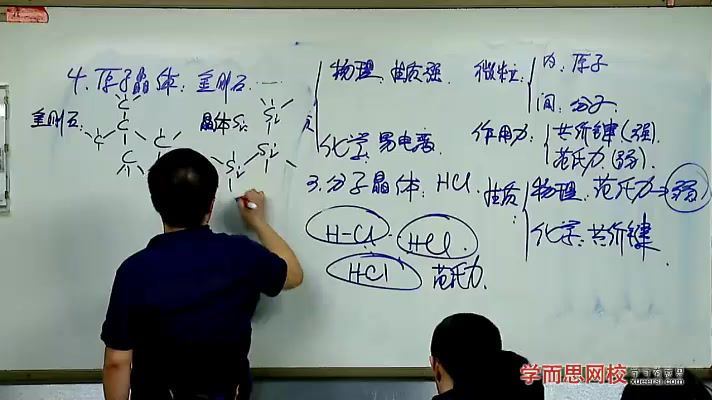 4. 原子晶体: 金刚石 ……
金刚石:
C C C C C
晶体Si:
Si Si Si
物理: 性质强.
化学: 易电离
3. 分子晶体: HCl.
H-Cl HCl.
HCl 范氏力.
微粒
内: 原子
间: 分子.
作用力:
共价键 (强).
范氏力 (弱).
性质:
物理: 范氏力→弱
化学: 共价键
学而思网校
xueersi.com